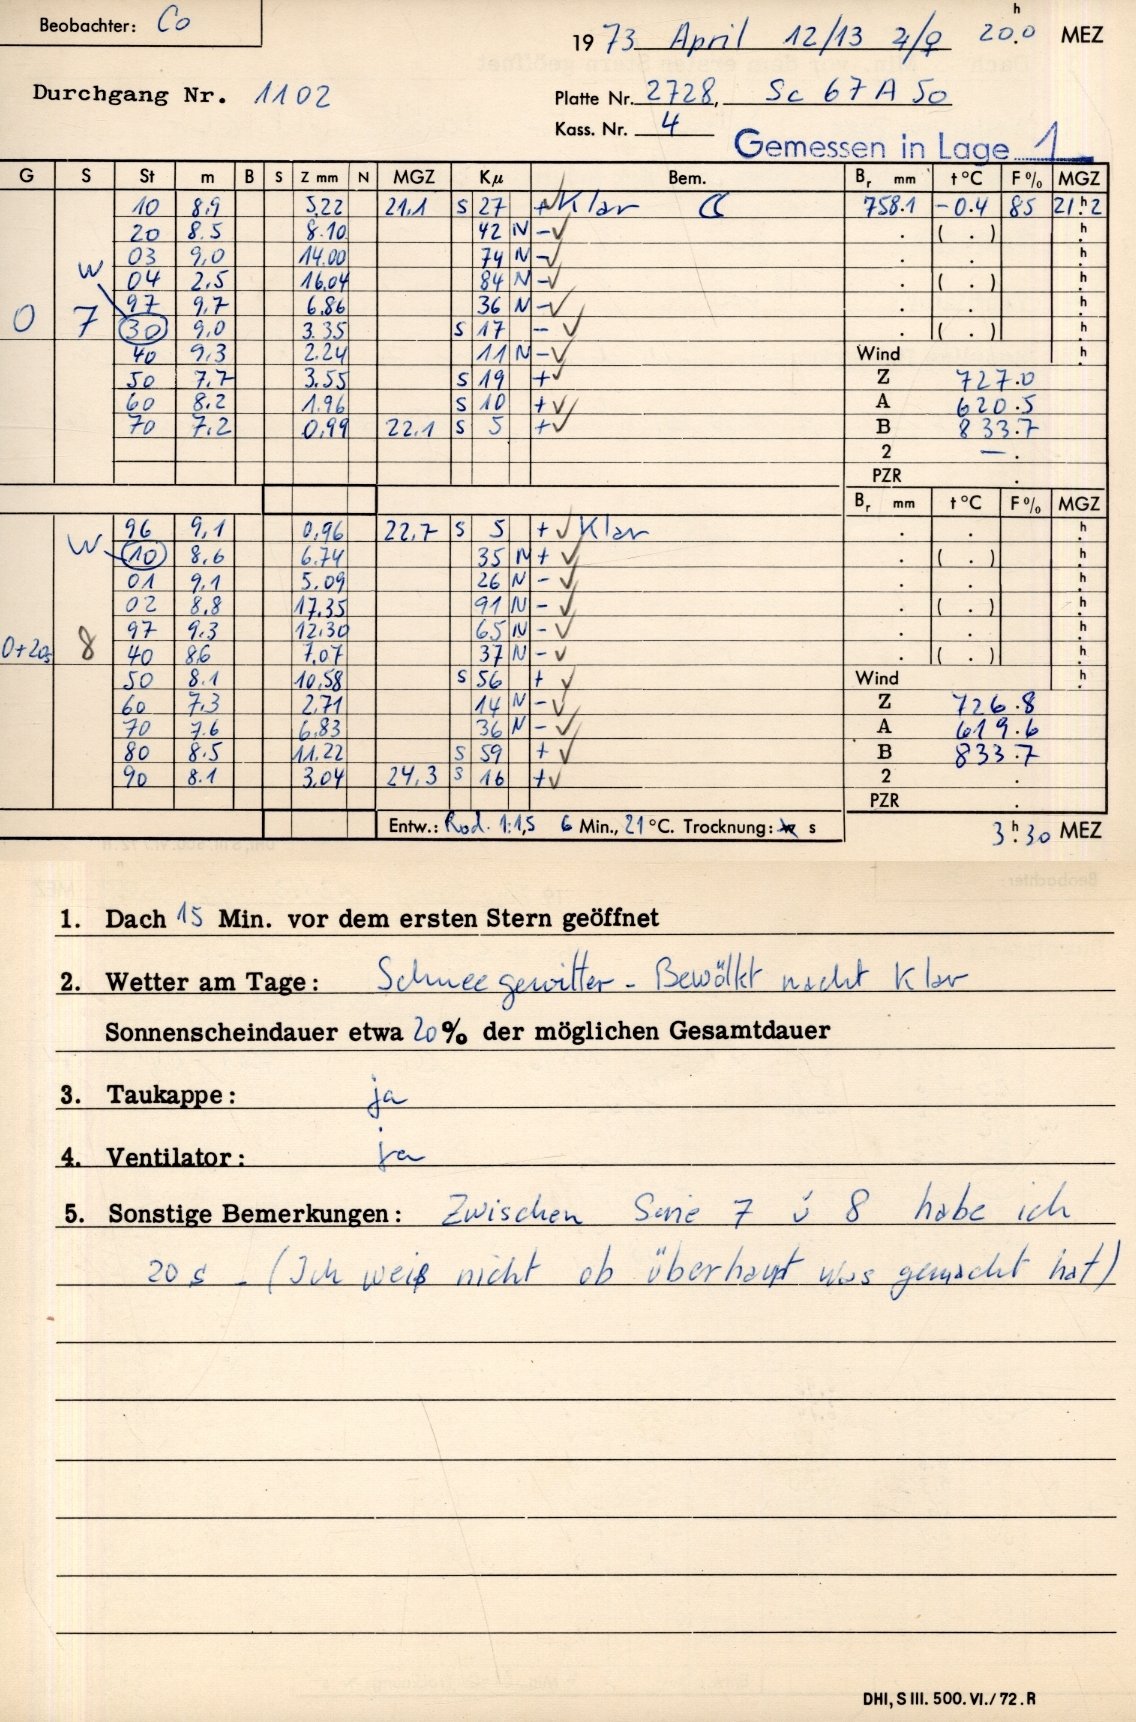 Beobachter: Co
1973 April 12/13 ♃/♀ 20.0 h MEZ
Durchgang Nr. 1102
Platte Nr. 2728, Sc 67 A 50
Kass. Nr. 4
Gemessen in Lage 1
G S St m B S Z mm N MGZ Kμ Bem. Br mm t°C F% MGZ
10 8.9 5.22 21.1 S 27 +✓ Klar ☾ 758.1 -0.4 85 21.h2
20 8.5 8.10 42 N -✓ . ( . ) h
03 9,0 14.00 74 N -✓ . . h
W 04 2,5 16.04 84 N -✓ . ( . ) h
97 9,7 6.86 36 N -✓ . . h
0 7 30 9,0 3.35 S 17 - ✓ . ( . ) h
40 9,3 2.24 11 N -✓ Wind h
50 7,7 3.55 S 19 +✓ Z 727.0
60 8.2 1.96 S 10 +✓ A 620.5
70 7,2 0,99 22,1 S 5 +✓ B 833.7
2 — .
PZR .
Br mm t°C F% MGZ
96 9,1 0,96 22,7 S 5 +✓ Klar . . h
W 10 8,6 6.74 35 N +✓ . ( . ) h
01 9,1 5.09 26 N -✓ . . h
02 8,8 17.35 91 N -✓ . ( . ) h
97 9,3 12.30 65 N -✓ . . h
0+20s 8 40 8,6 7.07 37 N -✓ . ( . ) h
50 8.1 10.58 S 56 +✓ Wind h
60 7,3 2.71 14 N -✓ Z 726.8
70 7.6 6.83 36 N -✓ A 619.6
80 8.5 11.22 S 59 +✓ B 833.7
90 8.1 3.04 24,3 S 16 +✓ 2 .
PZR .
Entw.: Rod. 1:1,5 6 Min., 21 °C. Trocknung: s
3.h30 MEZ
1. Dach 15 Min. vor dem ersten Stern geöffnet
2. Wetter am Tage: Schneegewitter - Bewölkt nacht Klar
Sonnenscheindauer etwa 20% der möglichen Gesamtdauer
3. Taukappe: ja
4. Ventilator: ja
5. Sonstige Bemerkungen: Zwischen Serie 7 u 8 habe ich
20 s - (Ich weiß nicht ob überhaupt was gemacht hat)
DHI, S III. 500. VI./72. R